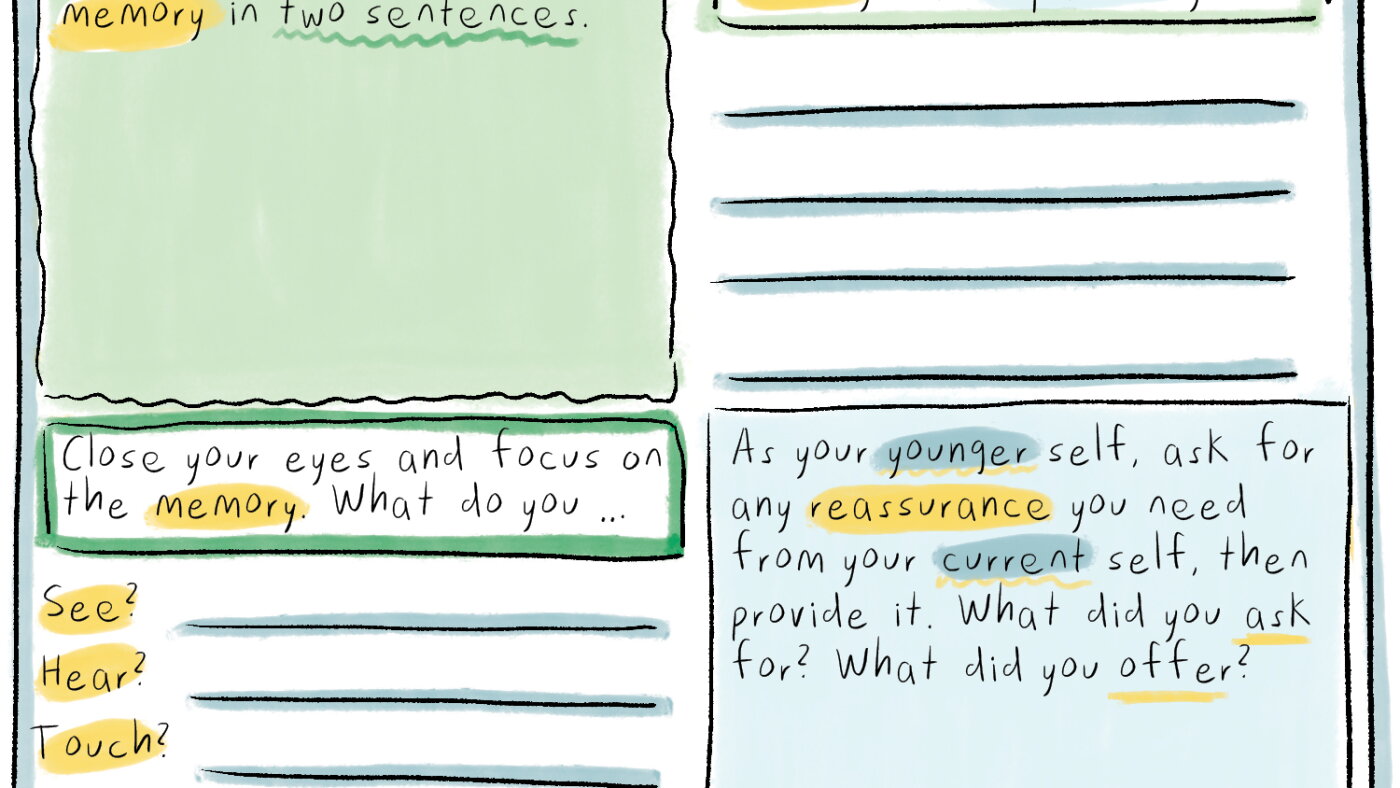 memory in two sentences.
Close your eyes and focus on
the memory. What do you ...
See?
Hear?
Touch?
As your younger self, ask for
any reassurance you need
from your current self, then
provide it. What did you ask
for? What did you offer?